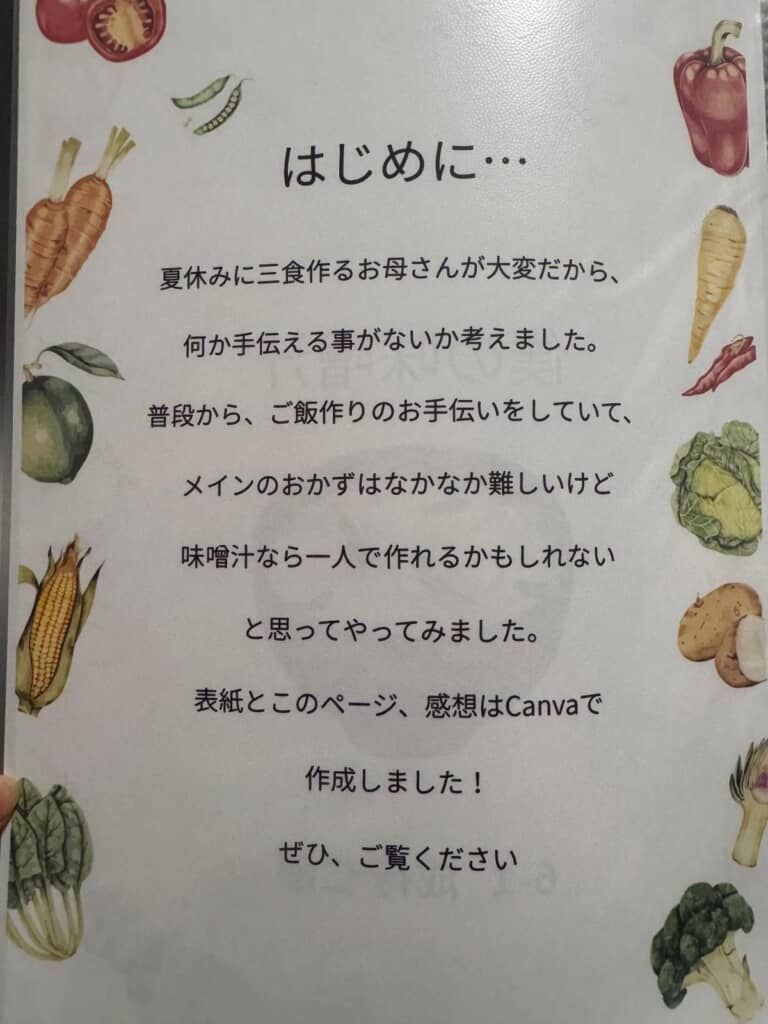 はじめに…
夏休みに三食作るお母さんが大変だから、
何か手伝える事がないか考えました。
普段から、ご飯作りのお手伝いをしていて、
メインのおかずはなかなか難しいけど
味噌汁なら一人で作れるかもしれない
と思ってやってみました。
表紙とこのページ、感想はCanvaで
作成しました！
ぜひ、ご覧ください